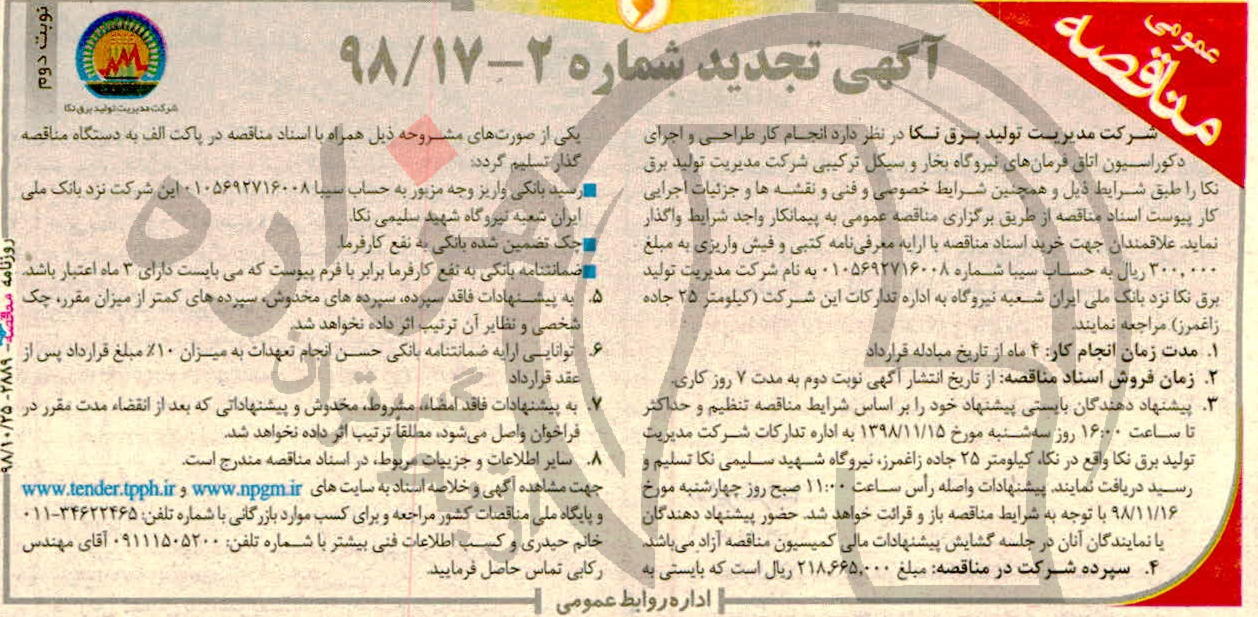 مناقصه عمومی
نوبت دوم
شرکت مدیریت تولید برق نکا
آگهی تجدید شماره ۲–۹۸/۱۷
شرکت مدیریت تولید برق نکا در نظر دارد انجام کار طراحی و اجرای
دکوراسیون اتاق فرمان‌های نیروگاه بخار و سیکل ترکیبی شرکت مدیریت تولید برق
نکا را طبق شرایط ذیل و همچنین شرایط خصوصی و فنی و نقشه ها و جزئیات اجرایی
کار پیوست اسناد مناقصه از طریق برگزاری مناقصه عمومی به پیمانکار واجد شرایط واگذار
نماید. علاقمندان جهت خرید اسناد مناقصه با ارایه معرفی‌نامه کتبی و فیش واریزی به مبلغ
۳۰۰,۰۰۰ ریال به حساب سیبا شماره ۰۱۰۵۶۹۲۷۱۶۰۰۸ به نام شرکت مدیریت تولید
برق نکا نزد بانک ملی ایران شعبه نیروگاه به اداره تدارکات این شرکت (کیلومتر ۲۵ جاده
زاغمرز) مراجعه نمایند.
۱. مدت زمان انجام کار: ۴ ماه از تاریخ مبادله قرارداد
۲. زمان فروش اسناد مناقصه: از تاریخ انتشار آگهی نوبت دوم به مدت ۷ روز کاری.
۳. پیشنهاد دهندگان بایستی پیشنهاد خود را بر اساس شرایط مناقصه تنظیم و حداکثر
تا ساعت ۱۶:۰۰ روز سه‌شنبه مورخ ۱۳۹۸/۱۱/۱۵ به اداره تدارکات شرکت مدیریت
تولید برق نکا واقع در نکا، کیلومتر ۲۵ جاده زاغمرز، نیروگاه شهید سلیمی نکا تسلیم و
رسید دریافت نمایند. پیشنهادات واصله رأس ساعت ۱۱:۰۰ صبح روز چهارشنبه مورخ
۹۸/۱۱/۱۶ با توجه به شرایط مناقصه باز و قرائت خواهد شد. حضور پیشنهاد دهندگان
یا نمایندگان آنان در جلسه گشایش پیشنهادات مالی کمیسیون مناقصه آزاد می‌باشد.
۴. سپرده شرکت در مناقصه: مبلغ ۲۱۸,۶۶۵,۰۰۰ ریال است که بایستی به
یکی از صورت‌های مشروحه ذیل همراه با اسناد مناقصه در پاکت الف به دستگاه مناقصه
گذار تسلیم گردد:
رسید بانکی واریز وجه مزبور به حساب سیبا ۰۱۰۵۶۹۲۷۱۶۰۰۸ این شرکت نزد بانک ملی
ایران شعبه نیروگاه شهید سلیمی نکا.
چک تضمین شده بانکی به نفع کارفرما.
ضمانتنامه بانکی به نفع کارفرما برابر با فرم پیوست که می بایست دارای ۳ ماه اعتبار باشد.
۵. به پیشنهادات فاقد سپرده، سپرده های مخدوش، سپرده های کمتر از میزان مقرر، چک
شخصی و نظایر آن ترتیب اثر داده نخواهد شد.
۶. توانایی ارایه ضمانتنامه بانکی حسن انجام تعهدات به میزان ۱۰٪ مبلغ قرارداد پس از
عقد قرارداد
۷. به پیشنهادات فاقد امضاء، مشروط، مخدوش و پیشنهاداتی که بعد از انقضاء مدت مقرر در
فراخوان واصل می‌شود، مطلقاً ترتیب اثر داده نخواهد شد.
۸. سایر اطلاعات و جزییات مربوط، در اسناد مناقصه مندرج است.
جهت مشاهده آگهی و خلاصه اسناد به سایت های www.npgm.ir و www.tender.tpph.ir
و پایگاه ملی مناقصات کشور مراجعه و برای کسب موارد بازرگانی با شماره تلفن: ۳۴۶۲۲۴۶۵–۰۱۱
خانم حیدری و کسب اطلاعات فنی بیشتر با شماره تلفن: ۰۹۱۱۱۵۰۵۲۰۰ آقای مهندس
رکابی تماس حاصل فرمایید.
اداره روابط عمومی
روزنامه مناقصه – ۲۸۸۹ – ۹۸/۱۰/۲۵